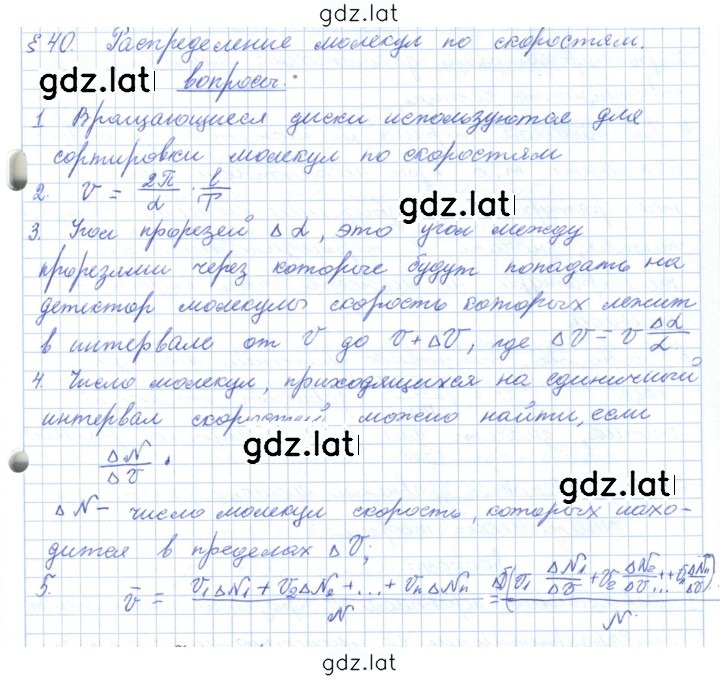 gdz.lat
§ 40. Распределение молекул по скоростям.
gdz.lat вопросы.
1 Вращающиеся диски используются для
сортировки молекул по скоростям
2. v = 2π/α · l/T
gdz.lat
3. Угол прорезей Δα, это угол между
прорезями через которые будут попадать на
детектор молекулы скорость которых лежит
в интервале от v до v+Δv, где Δv = v Δα/α
4. Число молекул, приходящихся на единичный
интервал скоростей можно найти, если
ΔN/Δv .
gdz.lat
gdz.lat
ΔN – число молекул скорость, которых нахо-
дится в пределах Δv;
5. v̄ = (v₁ΔN₁ + v₂ΔN₂ + ... + vₙΔNₙ)/N = Δv(v₁ ΔN₁/Δv + v₂ ΔN₂/Δv ... + vₙ ΔNₙ/Δv)/N.
gdz.lat